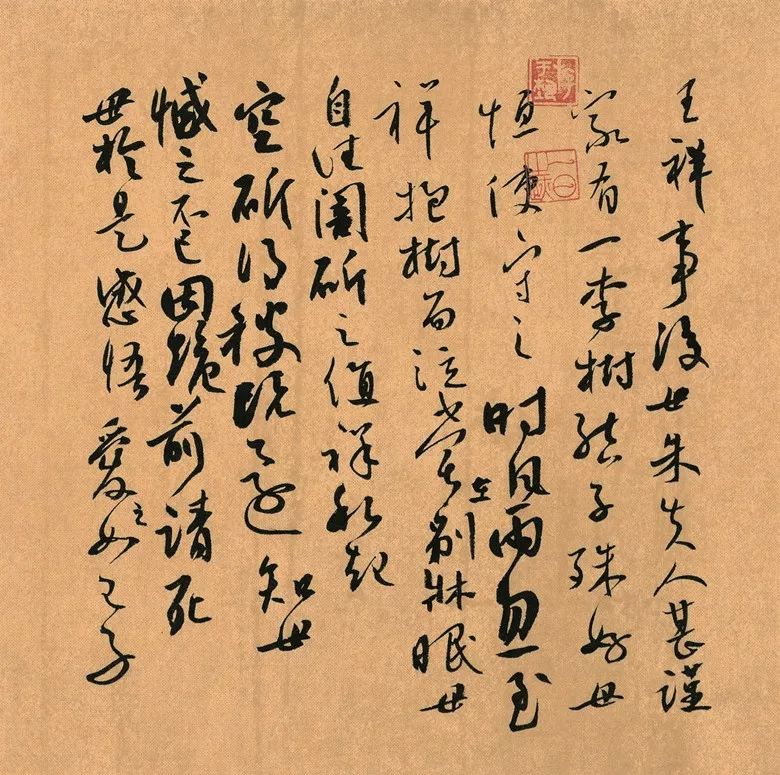 王祥事后母朱夫人甚謹
家有一李樹結子殊好母
恒使守之時风雨忽至
祥抱樹而泣嘗在別牀眠母
自往闇斫之值祥私起
空斫得被既還知母
憾之不已因跪前請死
母於是感悟愛之如己子